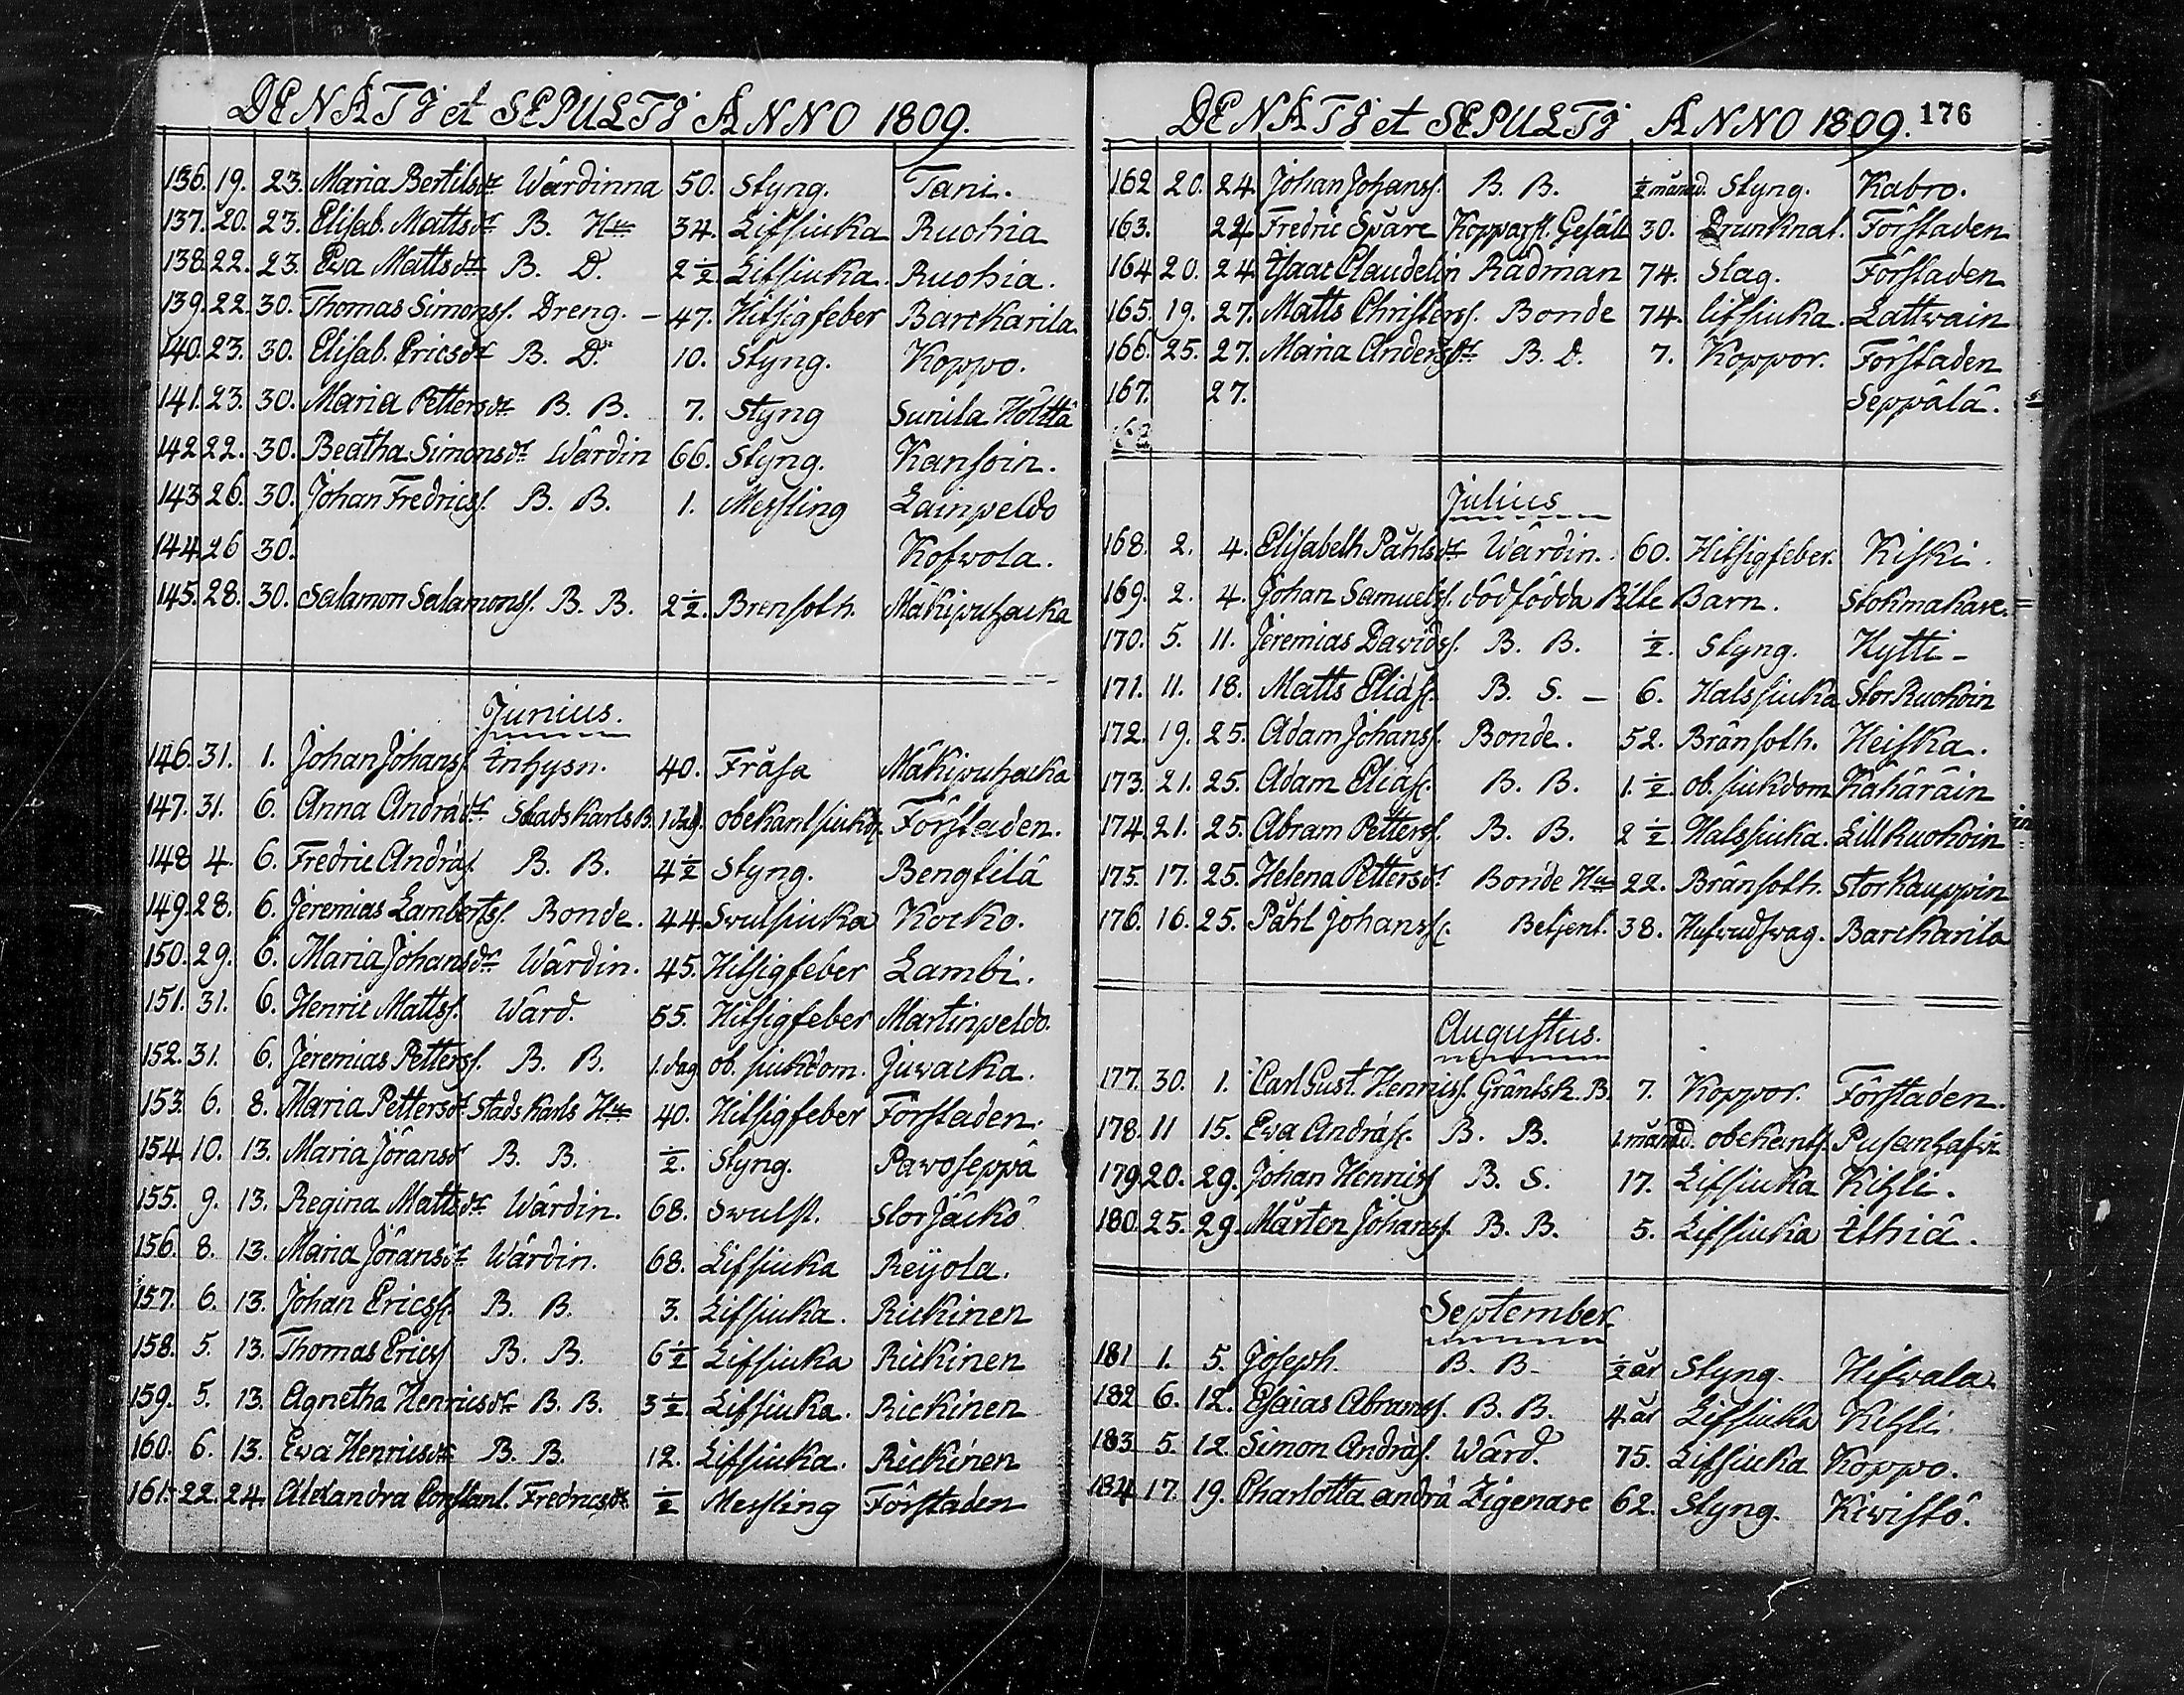 DENATI et SEPULTI ANNO 1809.
136. 19. 23. Maria Bertilsdr Wärdinna 50. Styng. Tani.
137. 20. 23. Elisab. Mattsdr B. Hu 34. Lifsiuka Ruohia
138. 22. 23. Eva Mattsdr B. D. 2 1/2 Lifsiuka. Ruohia.
139. 22. 30. Thomas Simonss. Dreng. – 47. Hitsigfeber Barckarila.
140. 23. 30. Elisab. Ericsdr B. D. 10. Styng. Koppo.
141. 23. 30. Maria Pettersdr B. B. 7. Styng Sunila Höltta
142 22. 30. Beatha Simonsdr Wärdin 66. Styng. Kansoin.
143 26. 30. Johan Fredricss. B. B. 1. Messling Lainpeldo
144. 26 30. Kofvola.
145. 28. 30. Salamon Salamonss. B. B. 2 1/2. Brensoth. Mäkipuhacka
Junius.
146. 31. 1. Johan Johanss. Inhysn. 40. Fråsa Mäkipuhacka
147. 31. 6. Anna Andrádr StadsKarls B. 1 dag. obekant siukd. Förstaden.
148 4. 6. Fredric András. B. B. 4 1/2 Styng. Bengtilä
149. 28. 6. Jeremias Lambertss. Bonde. 44. Swulsiuka Kocko.
150. 29. 6. Maria Johansdr Wärdin. 45. Hitsigfeber Lambi.
151. 31. 6. Henric Mattss. Wärd. 55. Hitsigfeber Martinpeldo.
152. 31. 6. Jeremias Petterss. B. B. 1. dag ob. siukdom. Juvacka.
153. 6. 8. Maria Pettersdr Stads Karls Hu 40. Hitsigfeber Förstaden.
154. 10. 13. Maria Jöransdr B. B. 1/2. Styng. Pavoseppä
155. 9. 13. Regina Mattsdr Wärdin. 68. Swulst. Stor Jäckö
156. 8. 13. Maria Jöransdr Wärdin. 68. Lifsiuka Reijola.
157. 6. 13. Johan Ericss. B. B. 3. Lifsiuka. Rickinen
158. 5. 13. Thomas Ericss B. B. 6 1/2 Lifsiuka Rickinen
159. 5. 13. Agnetha Henricsdr B. B. 3 1/2. Lifsiuka. Rickinen
160. 6. 13. Eva Henricsdr B. B. 12. Lifsiuka. Rickinen
161. 22. 24. Alexandra Constant. Fredricsdr 1/2 Messling Förstaden
DENATI et SEPULTI ANNO 1809. 176
162 20. 24. Johan Johanss. B. B. 1/2 månad. Styng. Kabro.
163. 24. Fredric Spåre Kopparsl. Gesäll 30. Drunknat. Förstaden
164 20. 24. Isaac Claudelin Rådman 74. Slag. Förstaden
165. 19. 27. Matts Christerss. Bonde 74. lifsiuka. Lattvain
166. 25. 27. Maria Andersdr B. D. 7. Koppor. Förstaden
167. 27. Seppälä.
168
Julius
168. 2. 4. Elisabeth Påhlsdr Wärdin. 60. Hitsigfeber. Kiski.
169. 2. 4. Johan Samuelss. dödfödda Pilte Barn. Stokmakare.
170. 5. 11. Jeremias Davidss. B. B. 1/2. Styng. Hytti –
171. 11. 18. Matts Eliass. B. S. – 6. Halssiuka Stor Ruokoin
172. 19. 25. Adam Johanss. Bonde. 52. Bränsoth. Heiska.
173. 21. 25. Adam Eliass. B. B. 1. 1/2. ob. siukdom Kähäräin
174. 21. 25. Abram Petterss. B. B. 2 1/2. Halssiuka. Lill Ruokoin
175. 17. 25. Helena Pettersdr Bonde Hu 22. Bränsoth. Stor Kauppin
176. 16. 25. Påhl Johanss. Betjent. 38. Hufvudsvag. Barckarila
Augustus.
177. 30. 1. Carl Gust. Henricss. Gräntsk. B. 7. Koppor. Förstaden.
178. 11 15. Eva Andráss. B. B. 1. månad. obekants.
179 20. 29. Johan Henricss B. S. 17. Lifsiuka Kihli.
180. 25. 29. Mårten Johanss. B. B. 5. Lifsiuka Ithiä.
September
181 1. 5. Joseph. B. B. 1/2 år Styng. Hifvala.
182 6. 12. Esaias Abramss. B. B. 4. år Lifsiuka Kihli.
183 5. 12. Simon András. Wärd. 75. Lifsiuka Koppo.
184 17. 19. Charlotta andrá Zigenare 62. Styng. Kivistö.